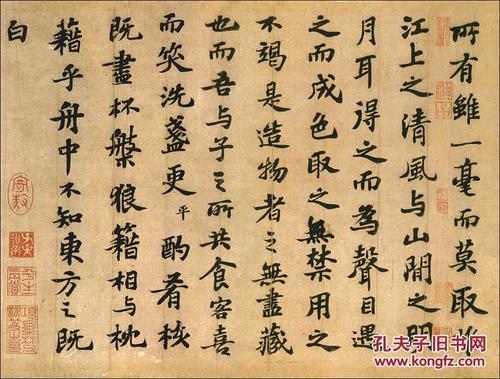 所有雖一毫而莫取惟
江上之清風与山閒之明
月耳得之而為聲目遇
之而成色取之無禁用之
不竭是造物者之無盡藏
也而吾与子之所共食客喜
而笑洗盞更平酌肴核
既盡杯槃狼籍相与枕
藉乎舟中不知東方之既
白
孔夫子旧书网
www.kongfz.com